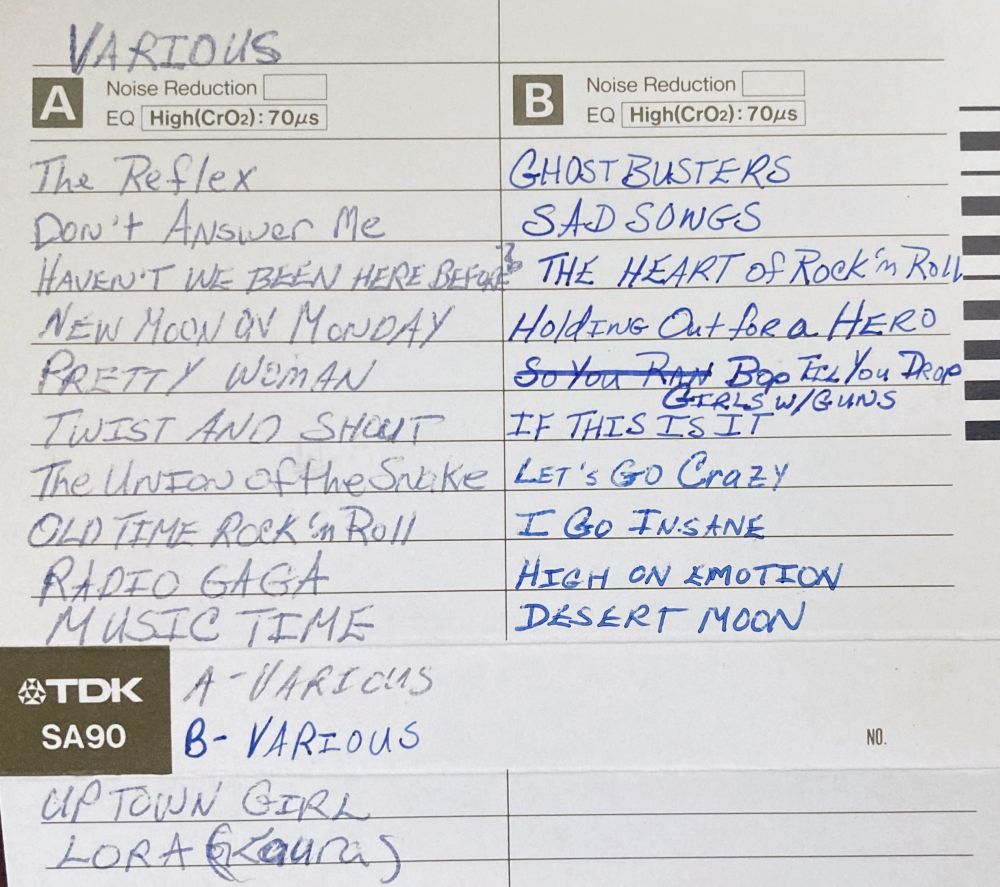 VARIOUS
A Noise Reduction
EQ High(CrO2): 70μs
The Reflex
Don't Answer Me
HAVEN'T WE BEEN HERE BEFORE?
NEW MOON ON MONDAY
PRETTY WOMAN
TWIST AND SHOUT
The UNION of the Snake
OLD TIME ROCK 'n Roll
RADIO GAGA
MUSIC TIME
B Noise Reduction
EQ High(CrO2): 70μs
GHOSTBUSTERS
SAD SONGS
THE HEART of Rock 'n Roll
Holding Out for a HERO
So You RAN Bop TIL You DROP
GIRLS W/GUNS
IF THIS IS IT
LET'S GO Crazy
I Go INSANE
HIGH ON EMOTION
DESERT MOON
TDK
SA90
A-VARIOUS
B- VARIOUS
NO.
UPTOWN GIRL
LORA (Laura)